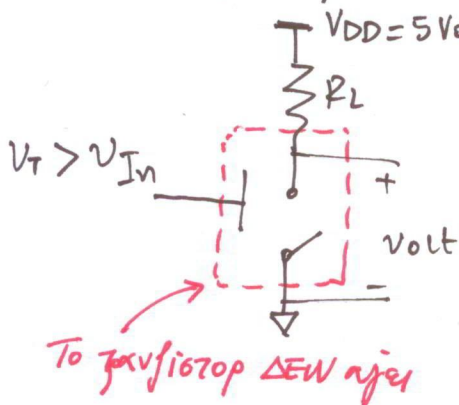 VDD = 5V
RL
VT > VIn
+
Volt
−
Το τρανζίστορ ΔΕΝ άγει